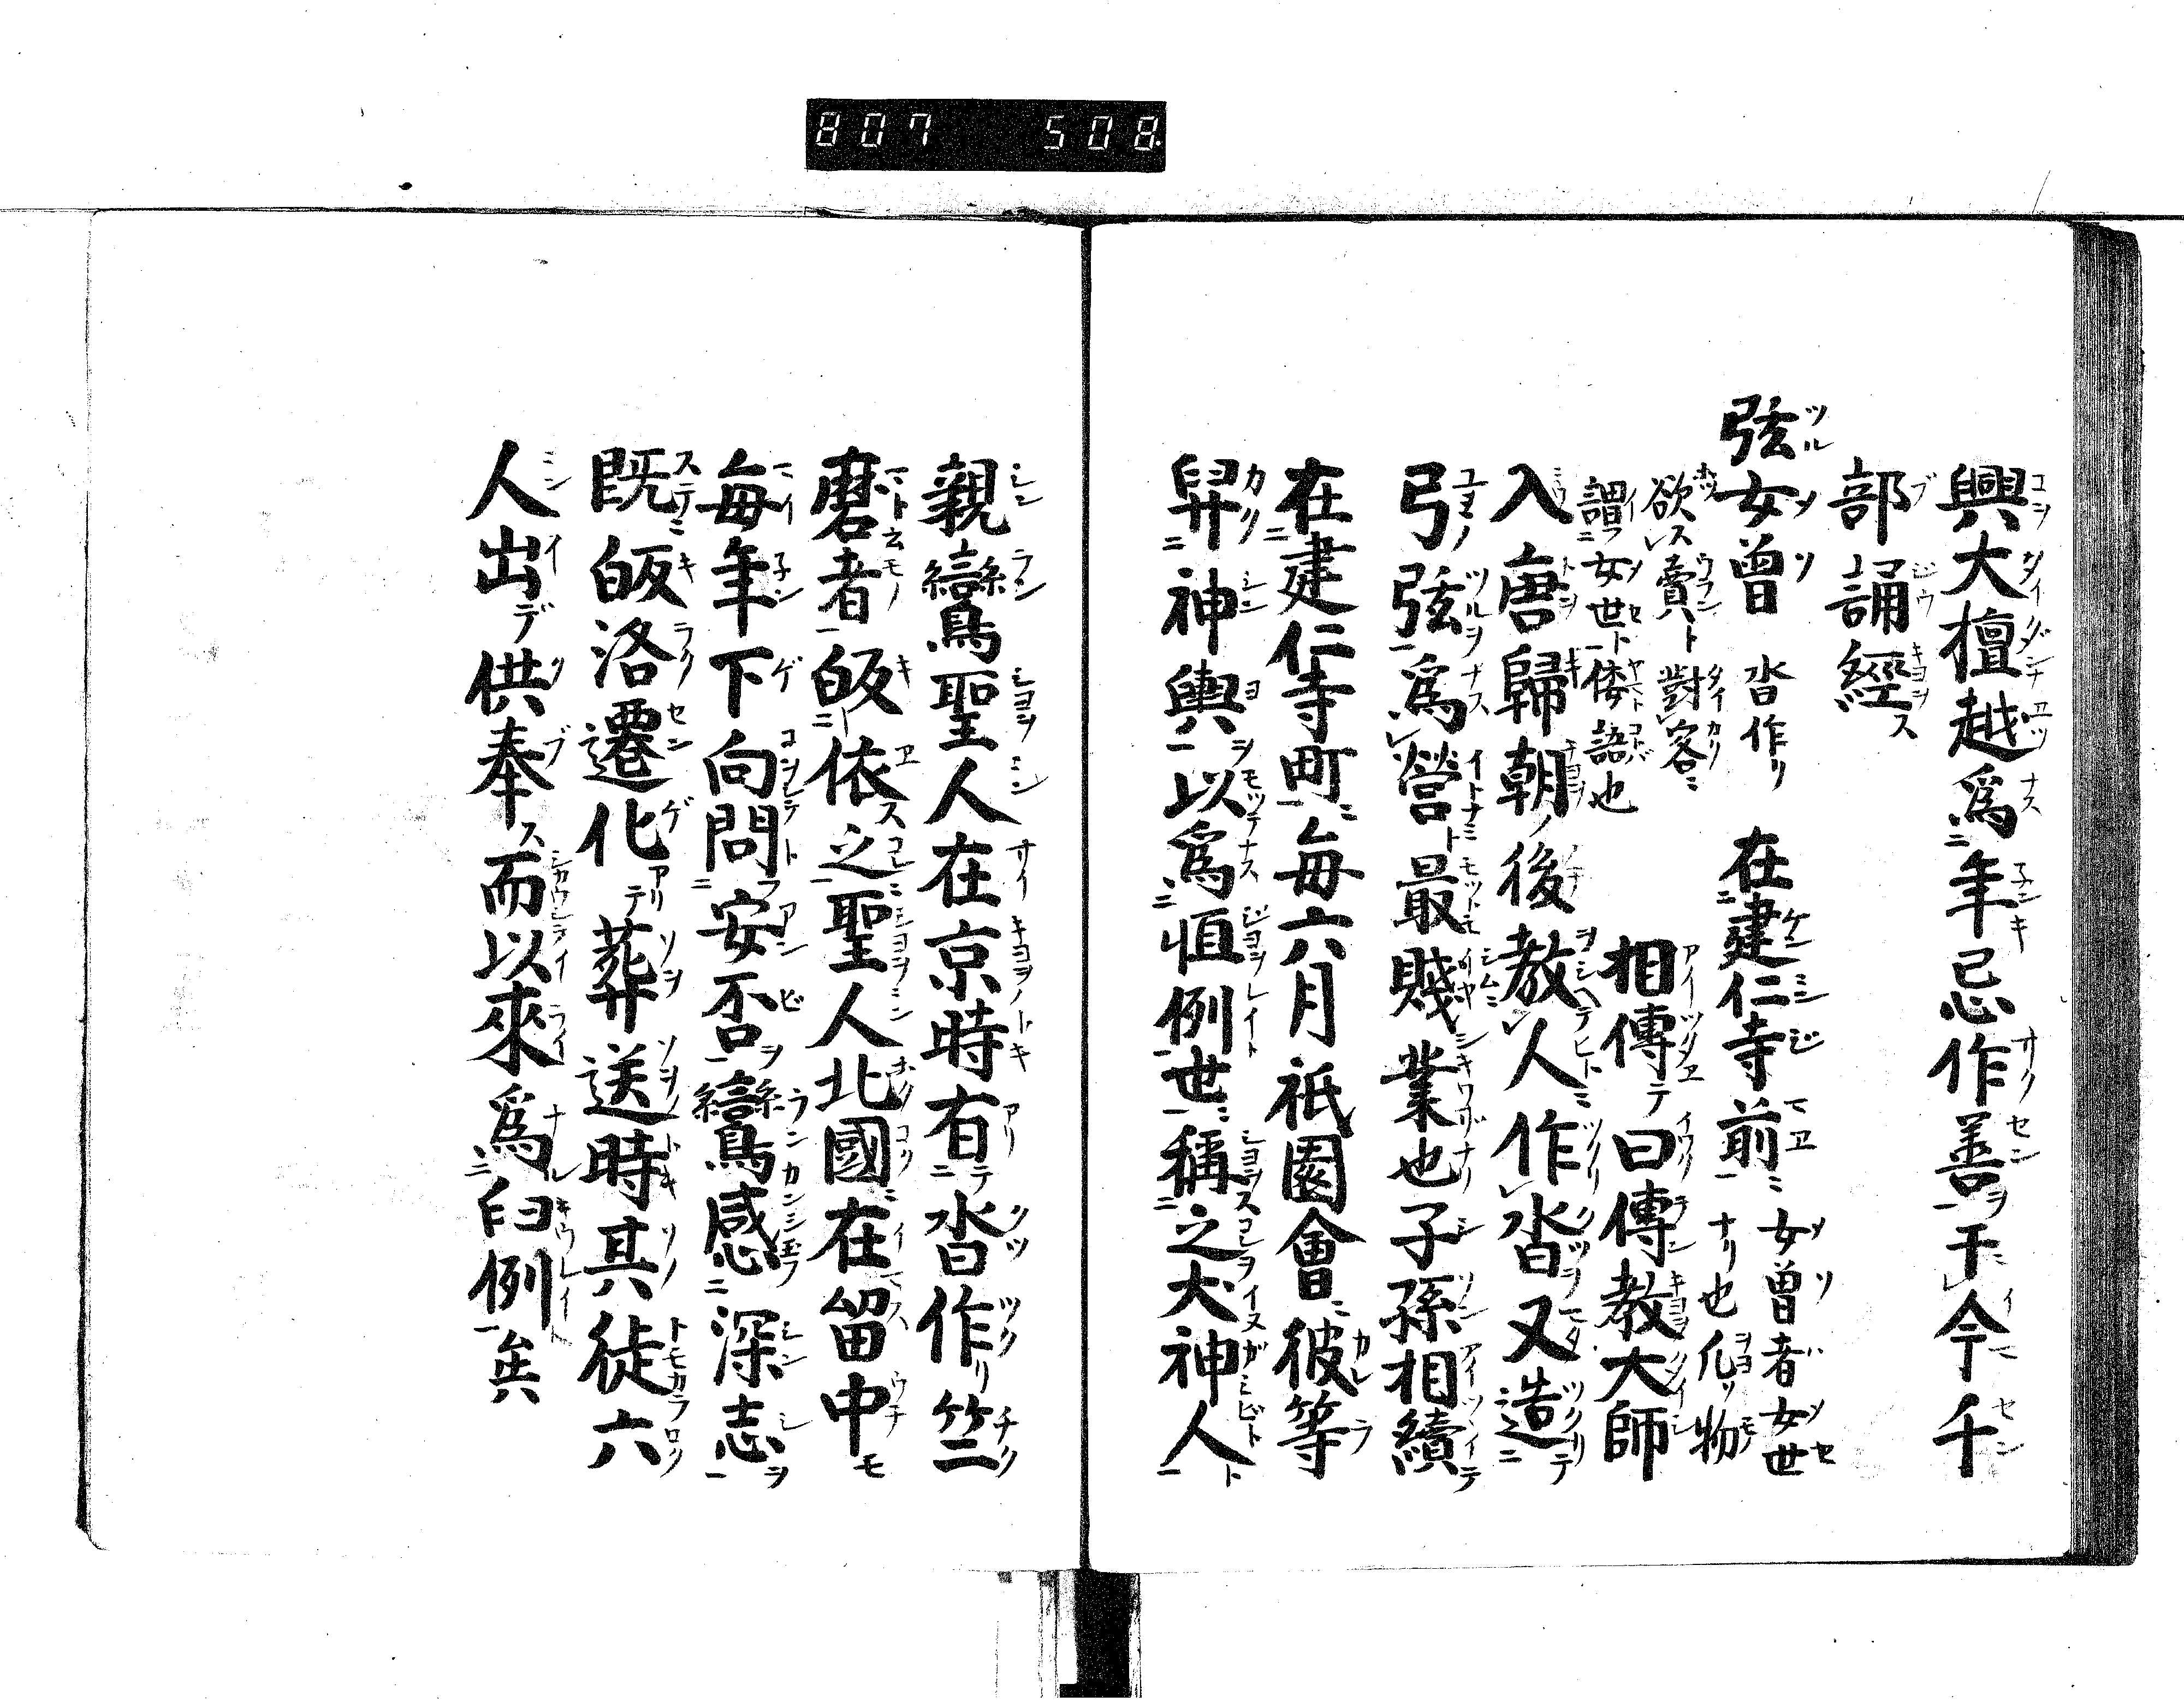 807 508
興大檀越爲年忌作善于今千
部誦經
弦女曽 沓作リ 在建仁寺前 女曽者女世
ナリ也凡ソ物
欲賣對客
謂女世倭語也
相傳曰傳教大師
入唐歸朝後教人作沓又造
弓弦爲營最賤業也子孫相續
在建仁寺町毎六月祇園會彼等
舁神輿以爲恒例世稱之犬神人
親鸞聖人在京時有沓作竺
磨者皈依之聖人北國在留中
毎年下向問安否鸞感深志
既皈洛遷化葬送時其徒六
人出供奉而以來爲臼例矣